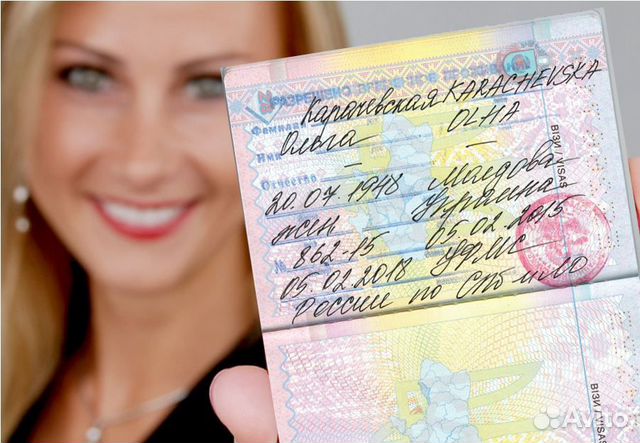 РАЗРЕШЕНО
Фамилия Карачевская KARACHEVSKA
Имя Ольга OLHA
Отчество — —
20.07.1948 Молдова
жен Украина
№ 862-15 05.02.2015
05.02.2018 УФМС
России по СПб и ЛО
ВІЗИ / VISAS
ВІЗИ / VISAS
Avito